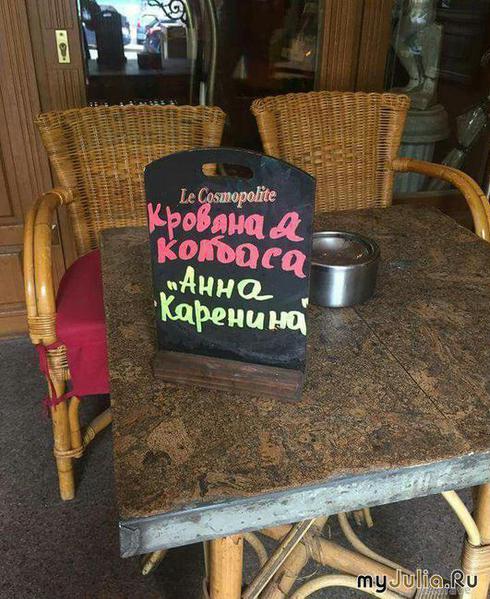 Le Cosmopolite
Кровяная
колбаса
"Анна
Каренина"
myJulia.Ru